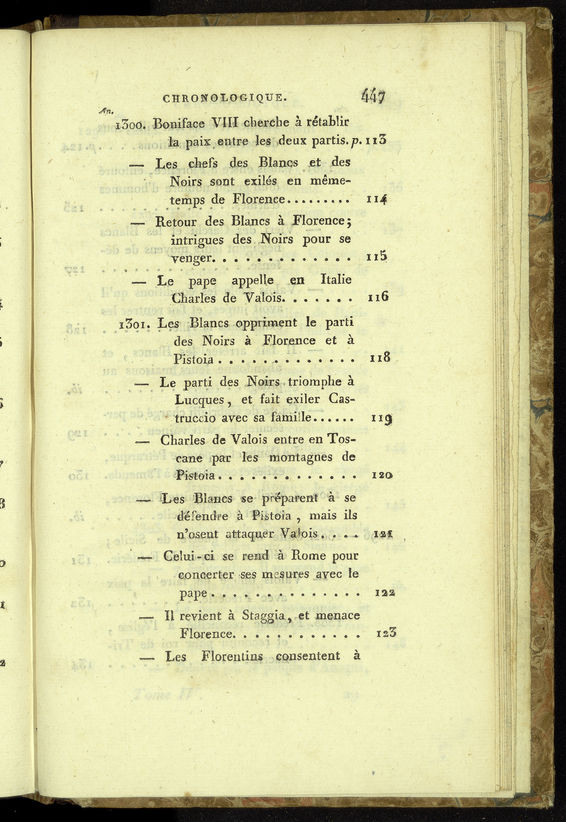 CHRONOLOGIQUE. 447
An.
1300. Boniface VIII cherche à rétablir
la paix entre les deux partis. p. 113
— Les chefs des Blancs et des
Noirs sont exilés en même-
temps de Florence......... 114
— Retour des Blancs à Florence;
intrigues des Noirs pour se
venger.............. 115
— Le pape appelle en Italie
Charles de Valois....... 116
1301. Les Blancs oppriment le parti
des Noirs à Florence et à
Pistoia.............. 118
— Le parti des Noirs triomphe à
Lucques, et fait exiler Cas-
truccio avec sa famille...... 119
— Charles de Valois entre en Tos-
cane par les montagnes de
Pistoia.............. 120
— Les Blancs se préparent à se
défendre à Pistoia , mais ils
n'osent attaquer Valois.... 121
— Celui-ci se rend à Rome pour
concerter ses mesures avec le
pape.............. 122
— Il revient à Staggia, et menace
Florence............. 123
— Les Florentins consentent à